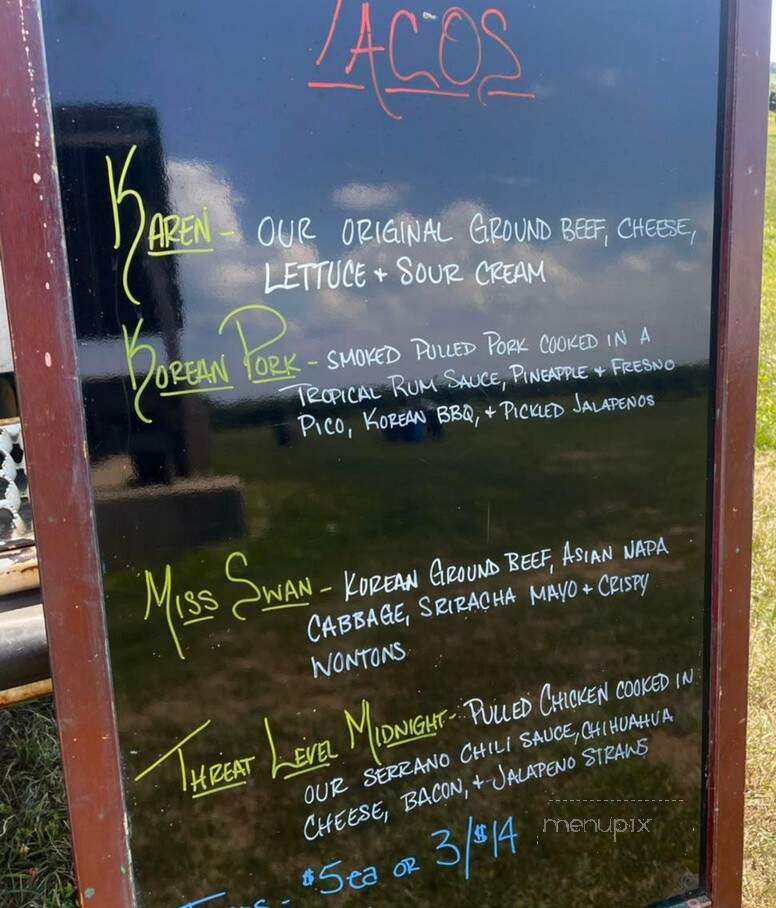 TACOS
KAREN - OUR ORIGINAL GROUND BEEF, CHEESE,
LETTUCE + SOUR CREAM
KOREAN PORK - SMOKED PULLED PORK COOKED IN A
TROPICAL RUM SAUCE, PINEAPPLE + FRESNO
PICO, KOREAN BBQ, + PICKLED JALAPENOS
MISS SWAN - KOREAN GROUND BEEF, ASIAN NAPA
CABBAGE, SRIRACHA MAYO + CRISPY
WONTONS
THREAT LEVEL MIDNIGHT - PULLED CHICKEN COOKED IN
OUR SERRANO CHILI SAUCE, CHIHUAHUA
CHEESE, BACON, + JALAPENO STRAWS
- $5ea OR 3/$14
menupix